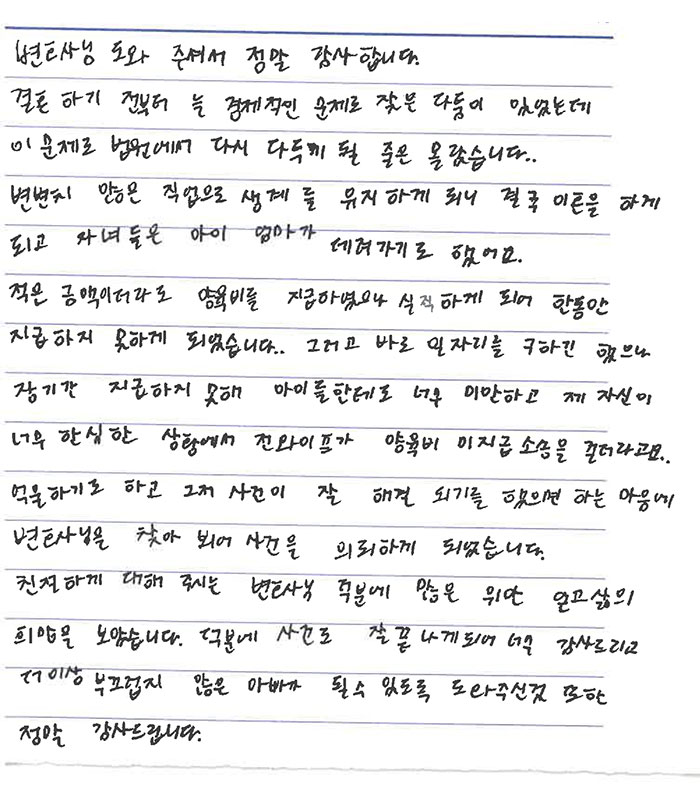 변호사님 도와 주셔서 정말 감사합니다.
결혼 하기 전부터 늘 경제적인 문제로 잦은 다툼이 있었는데
이 문제로 법원에서 다시 다투게 될 줄은 몰랐습니다..
변변치 않은 직업으로 생계 를 유지 하게 되니 결국 이혼을 하게
되고 자녀 들은 아이 엄마가 데려가기로 했어요.
적은 금액이더라도 양육비를 지급하였으나 실직하게 되어 한동안
지급하지 못하게 되었습니다.. 그러고 바로 일자리를 구하긴 했으나
장기간 지급하지 못해 아이들한테도 너무 미안하고 제 자신이
너무 한심한 상황에서 전와이프가 양육비 미지급 소송을 걸더라고요..
억울하기도 하고 그저 사건이 잘 해결 되기를 했으면 하는 마음에
변호사님을 찾아 뵈어 사건을 의뢰하게 되었습니다.
친절하게 대해 주시는 변호사님 덕분에 많은 위안 얻고 삶의
희망을 보았습니다. 덕분에 사건도 잘 끝나게되어 너무 감사드리고
더이상 부끄럽지 않은 아빠가 될수 있도록 도와주신것 또한
정말 감사드립니다.